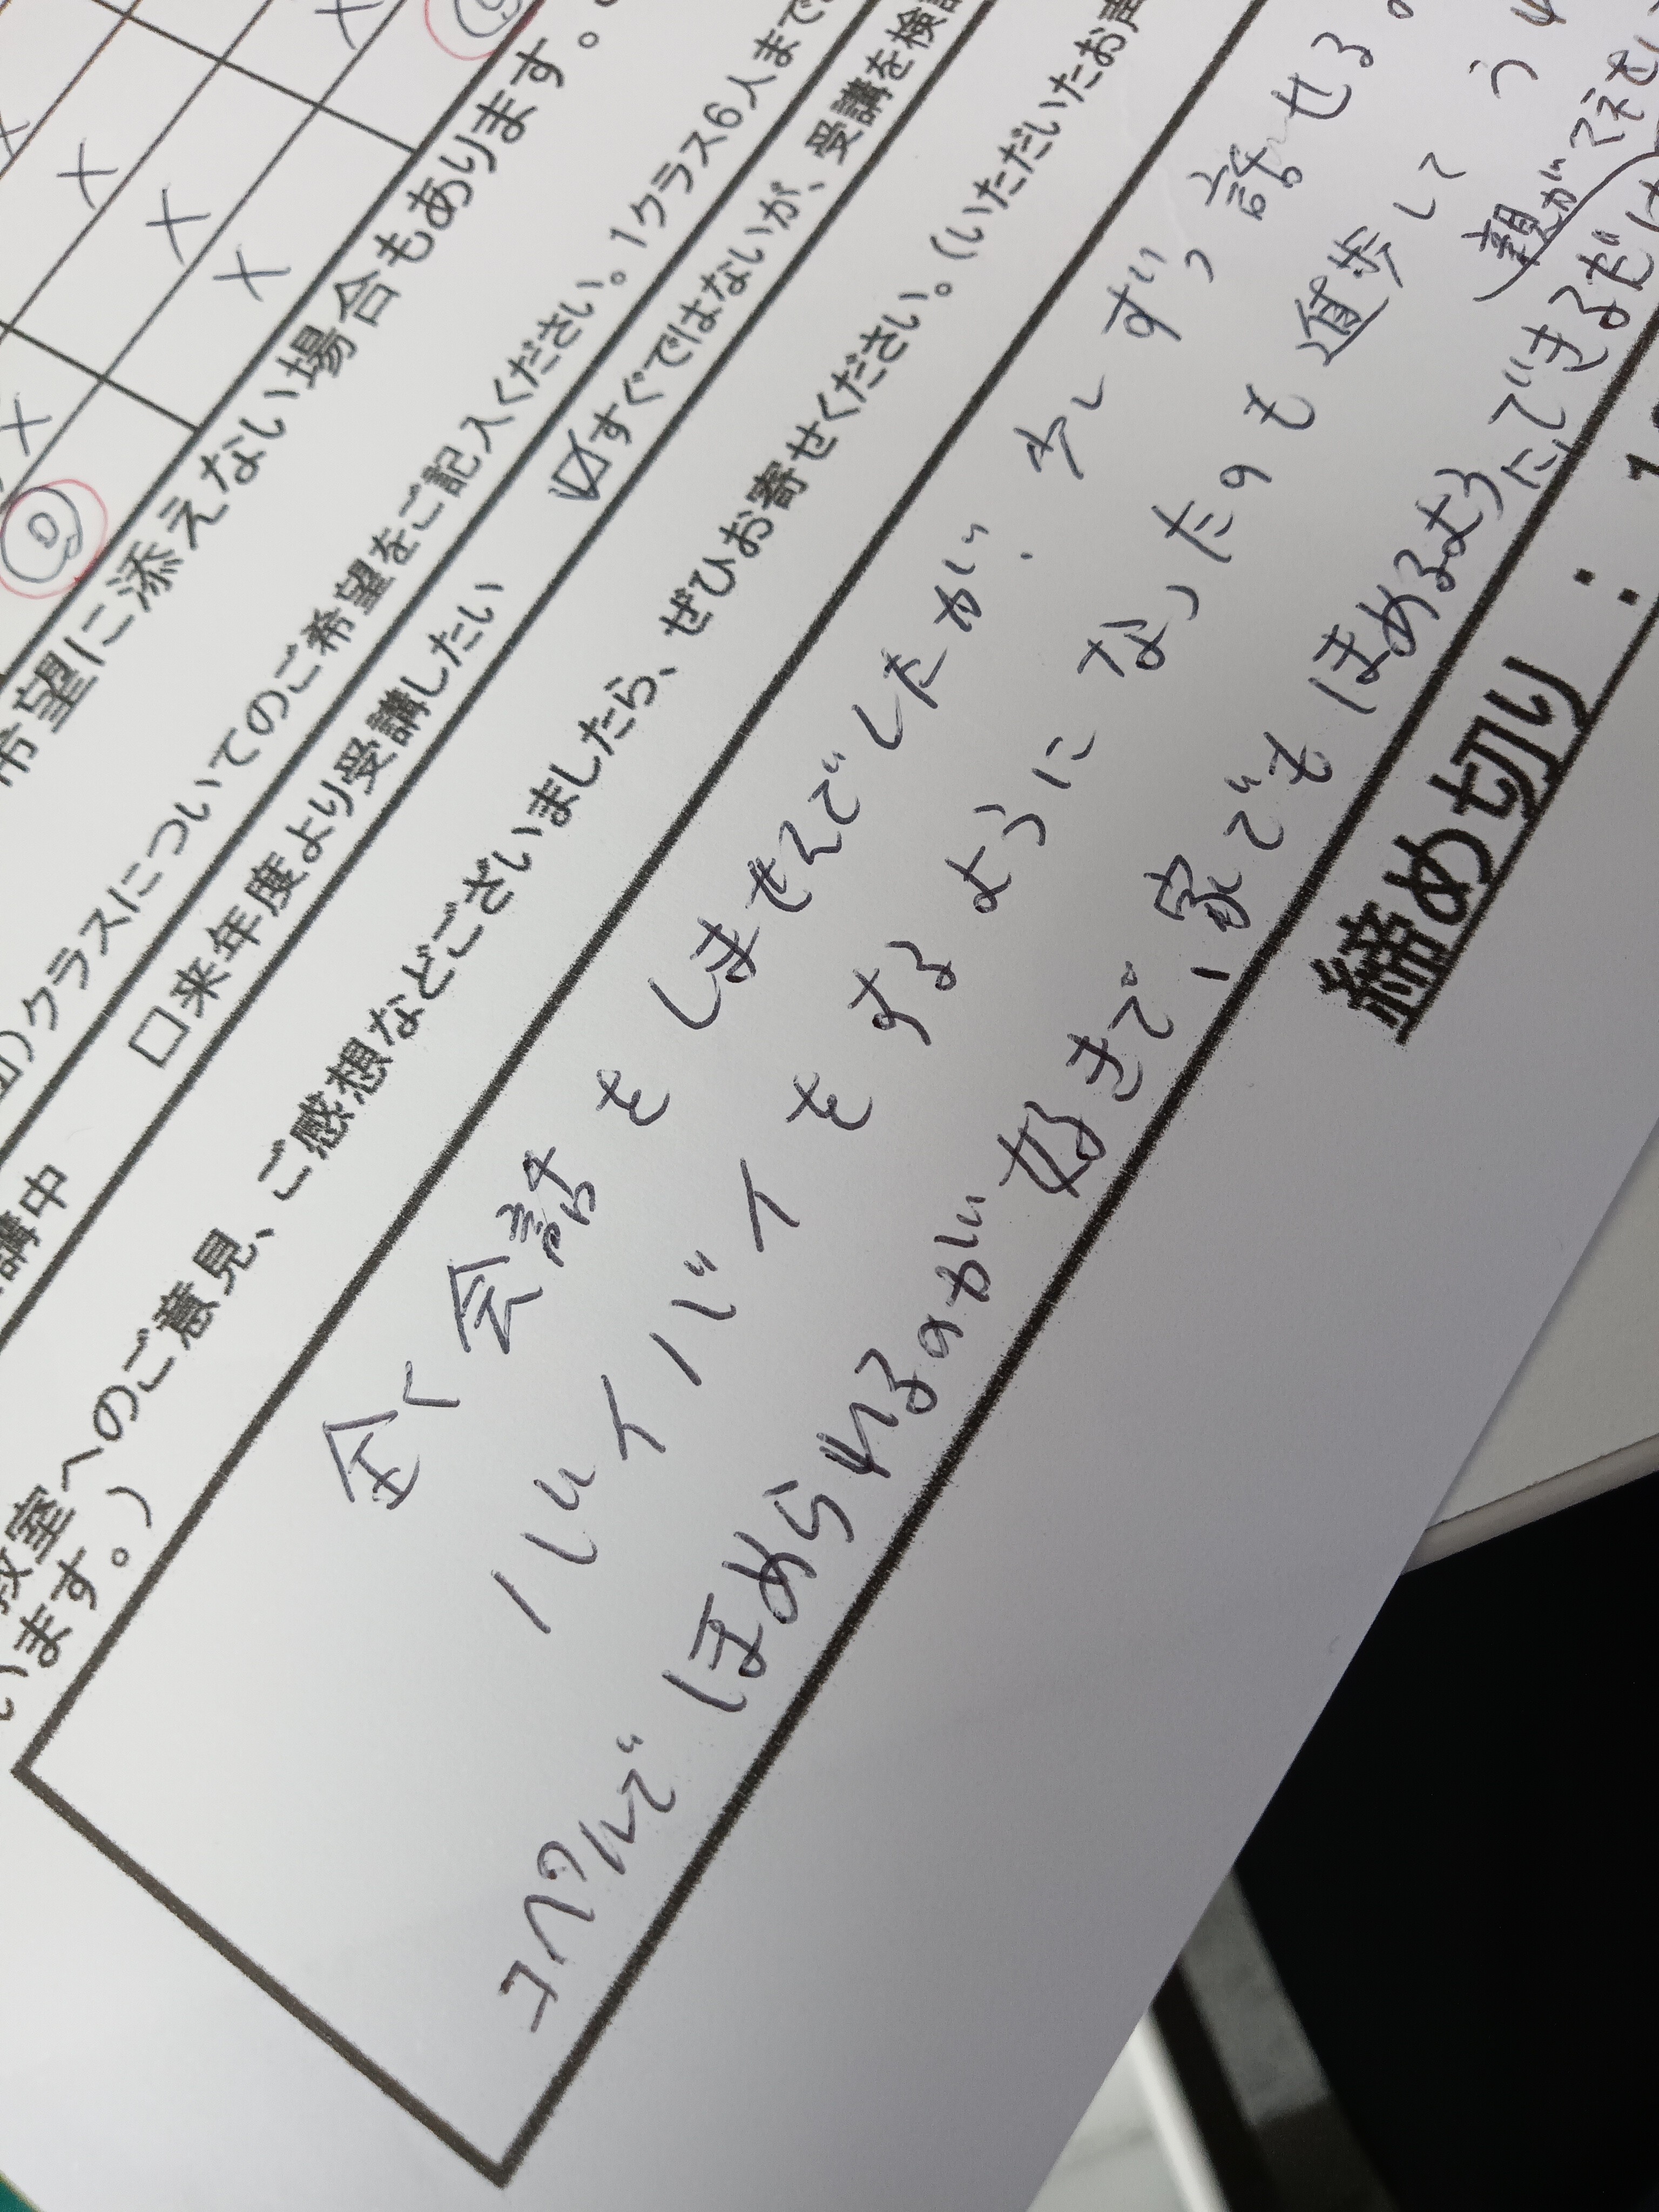 希望に添えない場合もあります。
クラスについてのご希望をご記入ください。1クラス6人まで
講中
□来年度より受講したい ☑すぐではないが、受講を検
教室へのご意見、ご感想などございましたら、ぜひお寄せください。(いただいたお声
います。)
全く会話をしませんでしたが、少しずつ話せる
バイバイをするようになったのも進歩して
コペルでほめられるのが好きで、家でもほめるようにできるだけ
親が
締め切り: